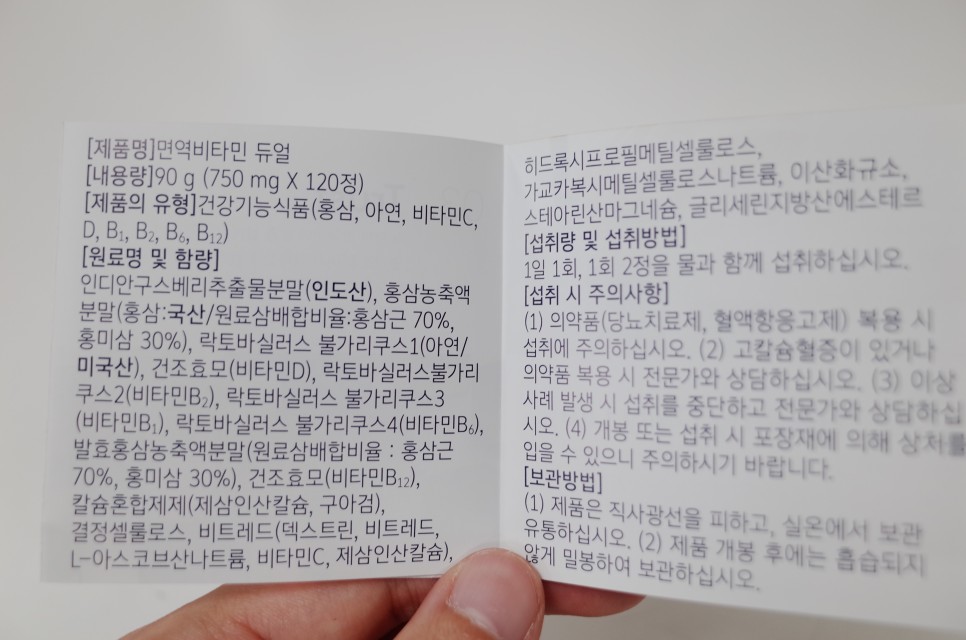 [제품명]면역비타민 듀얼
[내용량]90 g (750 mg X 120정)
[제품의 유형]건강기능식품(홍삼, 아연, 비타민C,
D, B₁, B₂, B₆, B₁₂)
[원료명 및 함량]
인디안구스베리추출물분말(인도산), 홍삼농축액
분말(홍삼:국산/원료삼배합비율:홍삼근 70%,
홍미삼 30%), 락토바실러스 불가리쿠스1(아연/
미국산), 건조효모(비타민D), 락토바실러스불가리
쿠스2(비타민B₂), 락토바실러스 불가리쿠스3
(비타민B₁), 락토바실러스 불가리쿠스4(비타민B₆),
발효홍삼농축액분말(원료삼배합비율 : 홍삼근
70%, 홍미삼 30%), 건조효모(비타민B₁₂),
칼슘혼합제제(제삼인산칼슘, 구아검),
결정셀룰로스, 비트레드(덱스트린, 비트레드,
L-아스코브산나트륨, 비타민C, 제삼인산칼슘),
히드록시프로필메틸셀룰로스,
가교카복시메틸셀룰로스나트륨, 이산화규소,
스테아린산마그네슘, 글리세린지방산에스테르
[섭취량 및 섭취방법]
1일 1회, 1회 2정을 물과 함께 섭취하십시오.
[섭취 시 주의사항]
(1) 의약품(당뇨치료제, 혈액항응고제) 복용 시
섭취에 주의하십시오. (2) 고칼슘혈증이 있거나
의약품 복용 시 전문가와 상담하십시오. (3) 이상
사례 발생 시 섭취를 중단하고 전문가와 상담하십
시오. (4) 개봉 또는 섭취 시 포장재에 의해 상처를
입을 수 있으니 주의하시기 바랍니다.
[보관방법]
(1) 제품은 직사광선을 피하고, 실온에서 보관
유통하십시오. (2) 제품 개봉 후에는 흡습되지
않게 밀봉하여 보관하십시오.